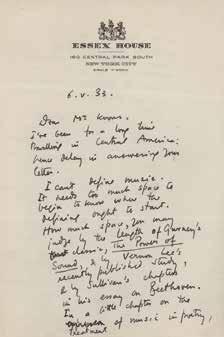 ESSEX HOUSE
160 CENTRAL PARK SOUTH
NEW YORK CITY
6.V.33.
Dear Mr
I've been for a long time
travelling in Central America;
hence delay in answering your
letter.
I can't define music.
It needs too much space to
begin to know where the
defining ought to start.
How much space, you may
judge by the length of Gurney's
classic, The Power of
Sound, & by Vernon Lee's
recently published study,
& by Sullivan's chapters
in his essay on Beethoven.
In a little chapter on the
of music in poetry,
treatment